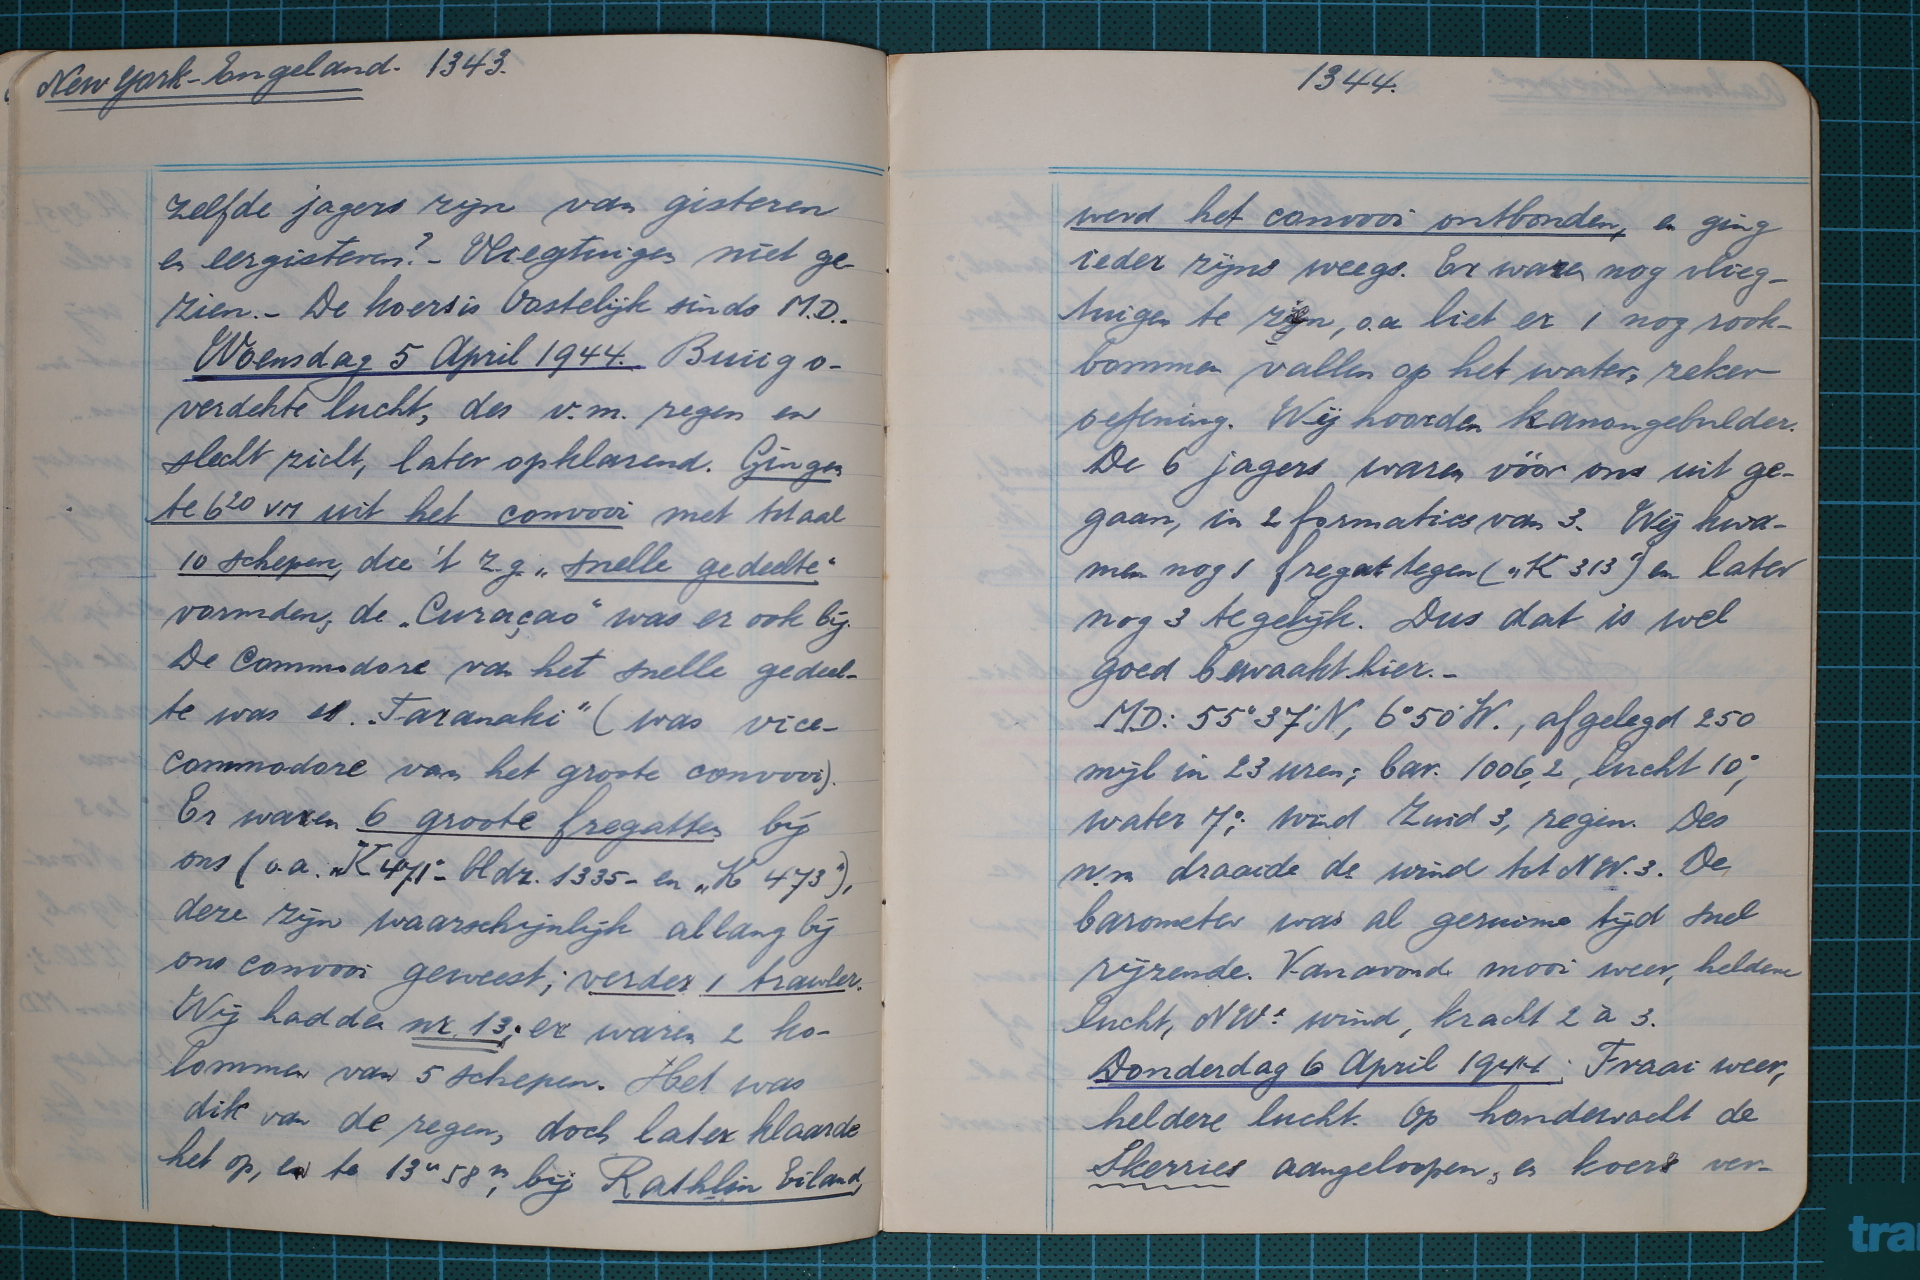 New York-Engeland. 1343.
zelfde jagers zijn van gisteren
en eergisteren? - Vliegtuigen niet ge-
zien. - De koers is Oostelijk sinds M.D.
Woensdag 5 April 1944. Buiig o-
verdekte lucht, des v.m. regen en
slecht zicht, later opklarend. Gingen
te 6²⁰ VM uit het convooi met totaal
10 schepen, die 't z.g. „snelle gedeelte"
vormden, de „Curaçao" was er ook bij.
De Commodore van het snelle gedeel-
te was „Taranaki" (was vice-
Commodore van het groote convooi).
Er waren 6 groote fregatten bij
ons (o.a. „K 471" - bldz. 1335 - en „K 473"),
deze zijn waarschijnlijk allang bij
ons convooi geweest; verder 1 trawler.
Wij hadden nr. 13; er waren 2 ko-
lommen van 5 schepen. Het was
dik van de regen, doch later klaarde
het op, en te 13ᵘ58ᵐ, bij Rathlin Eiland,
1344.
werd het convooi ontbonden, en ging
ieder zijns weegs. Er waren nog vlieg-
tuigen te zien, o.a liet er 1 nog rook-
bommen vallen op het water, zeker
oefening. Wij hoorden kanongebulder.
De 6 jagers waren vóór ons uit ge-
gaan, in 2 formaties van 3. Wij kwa-
men nog 1 fregat tegen („K 313") en later
nog 3 tegelijk. Dus dat is wel
goed bewaakt hier. -
MD: 55°37'N, 6°50'W., afgelegd 250
mijl in 23 uren; bar. 1006,2, lucht 10°,
water 7°; wind Zuid 3, regen. Des
n.m draaide de wind tot NW. 3. De
barometer was al geruime tijd snel
rijzende. Vanavond mooi weer, heldere
lucht, NWᵉ wind, kracht 2 à 3.
Donderdag 6 April 1944. Fraai weer,
heldere lucht. Op hondewacht de
Skerries aangeloopen, en koers ver-